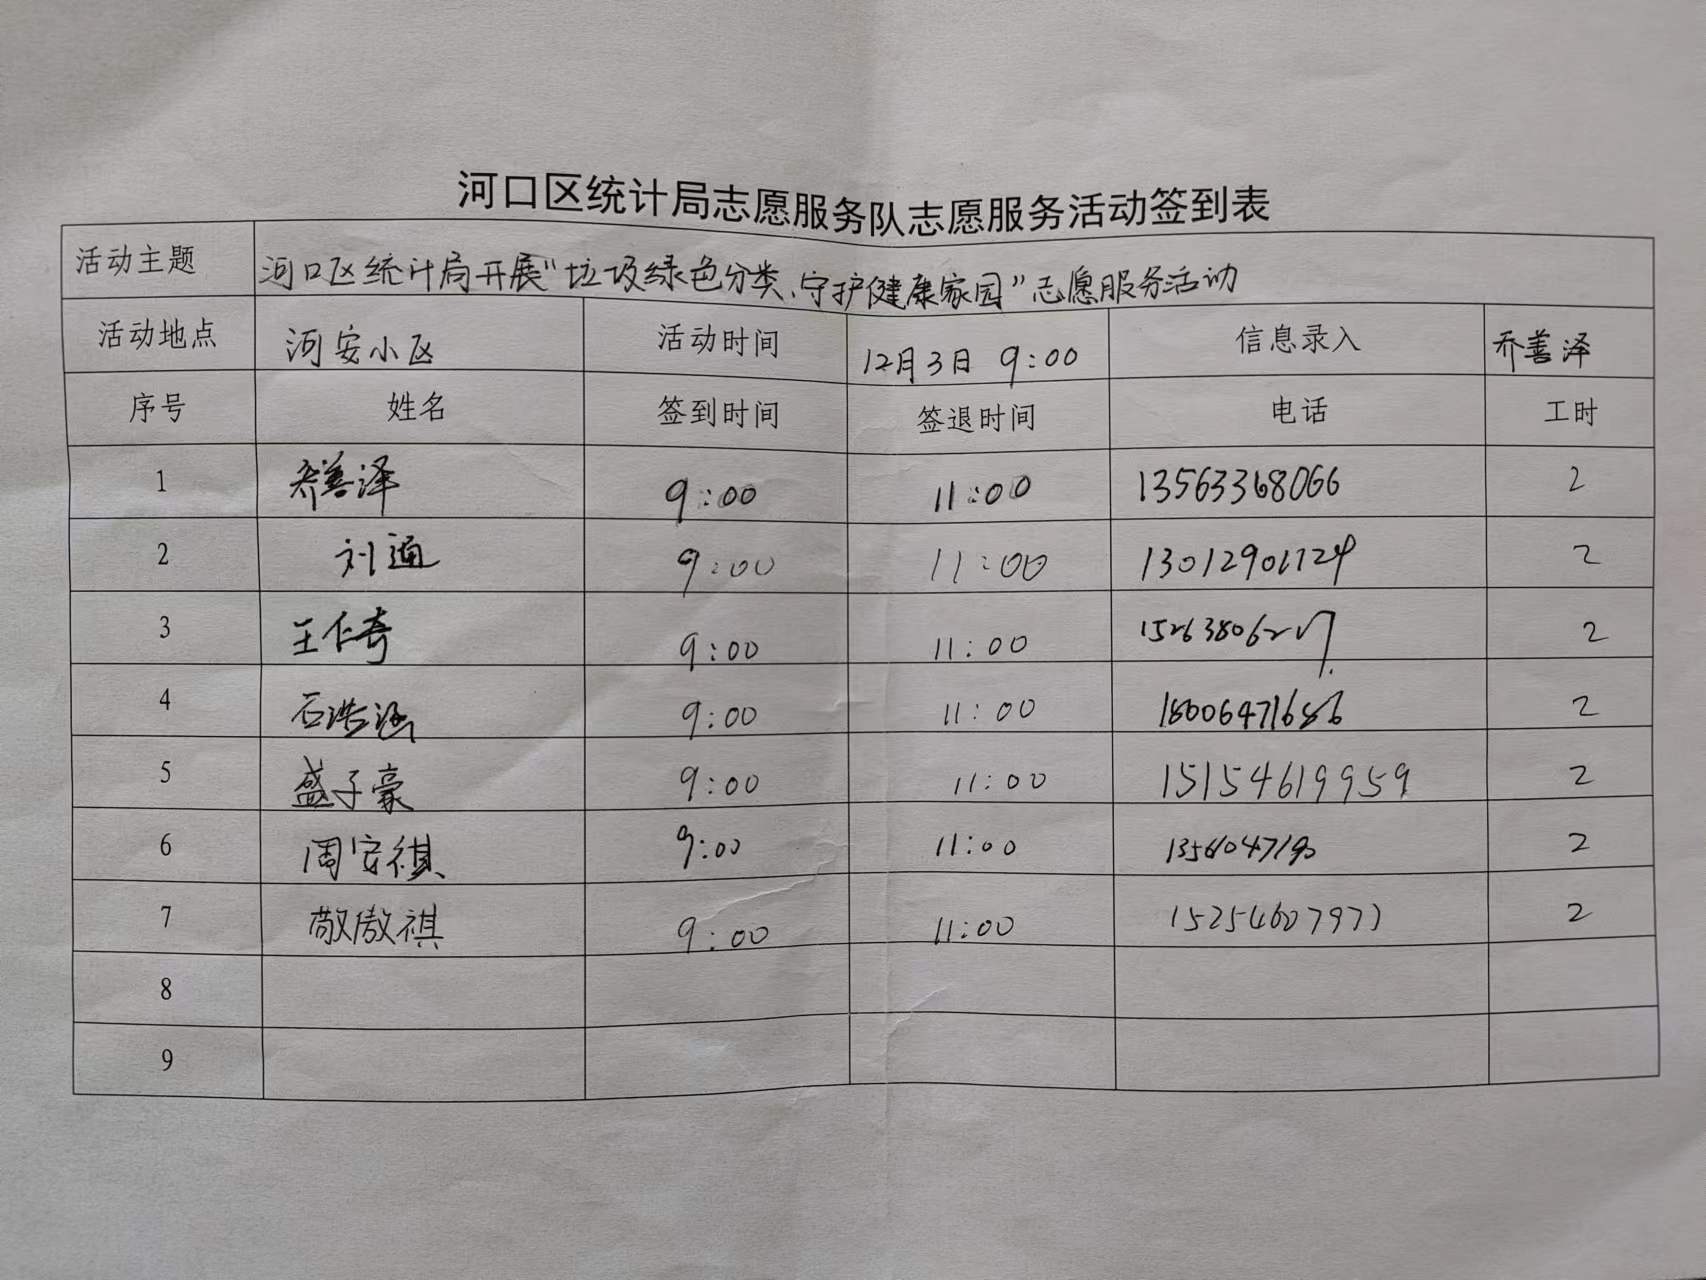 河口区统计局志愿服务队志愿服务活动签到表
活动主题 河口区统计局开展“垃圾绿色分类、守护健康家园”志愿服务活动
活动地点 河安小区 活动时间 12月3日 9:00 信息录入 乔善泽
序号 姓名 签到时间 签退时间 电话 工时
1 乔善泽 9:00 11:00 13563368066 2
2 刘通 9:00 11:00 13012901724 2
3 王仁奇 9:00 11:00 2
4 石浩涵 9:00 11:00 18006471686 2
5 盛子豪 9:00 11:00 15154619959 2
6 周安祺 9:00 11:00 2
7 敬傲祺 9:00 11:00 15254607977 2
8
9